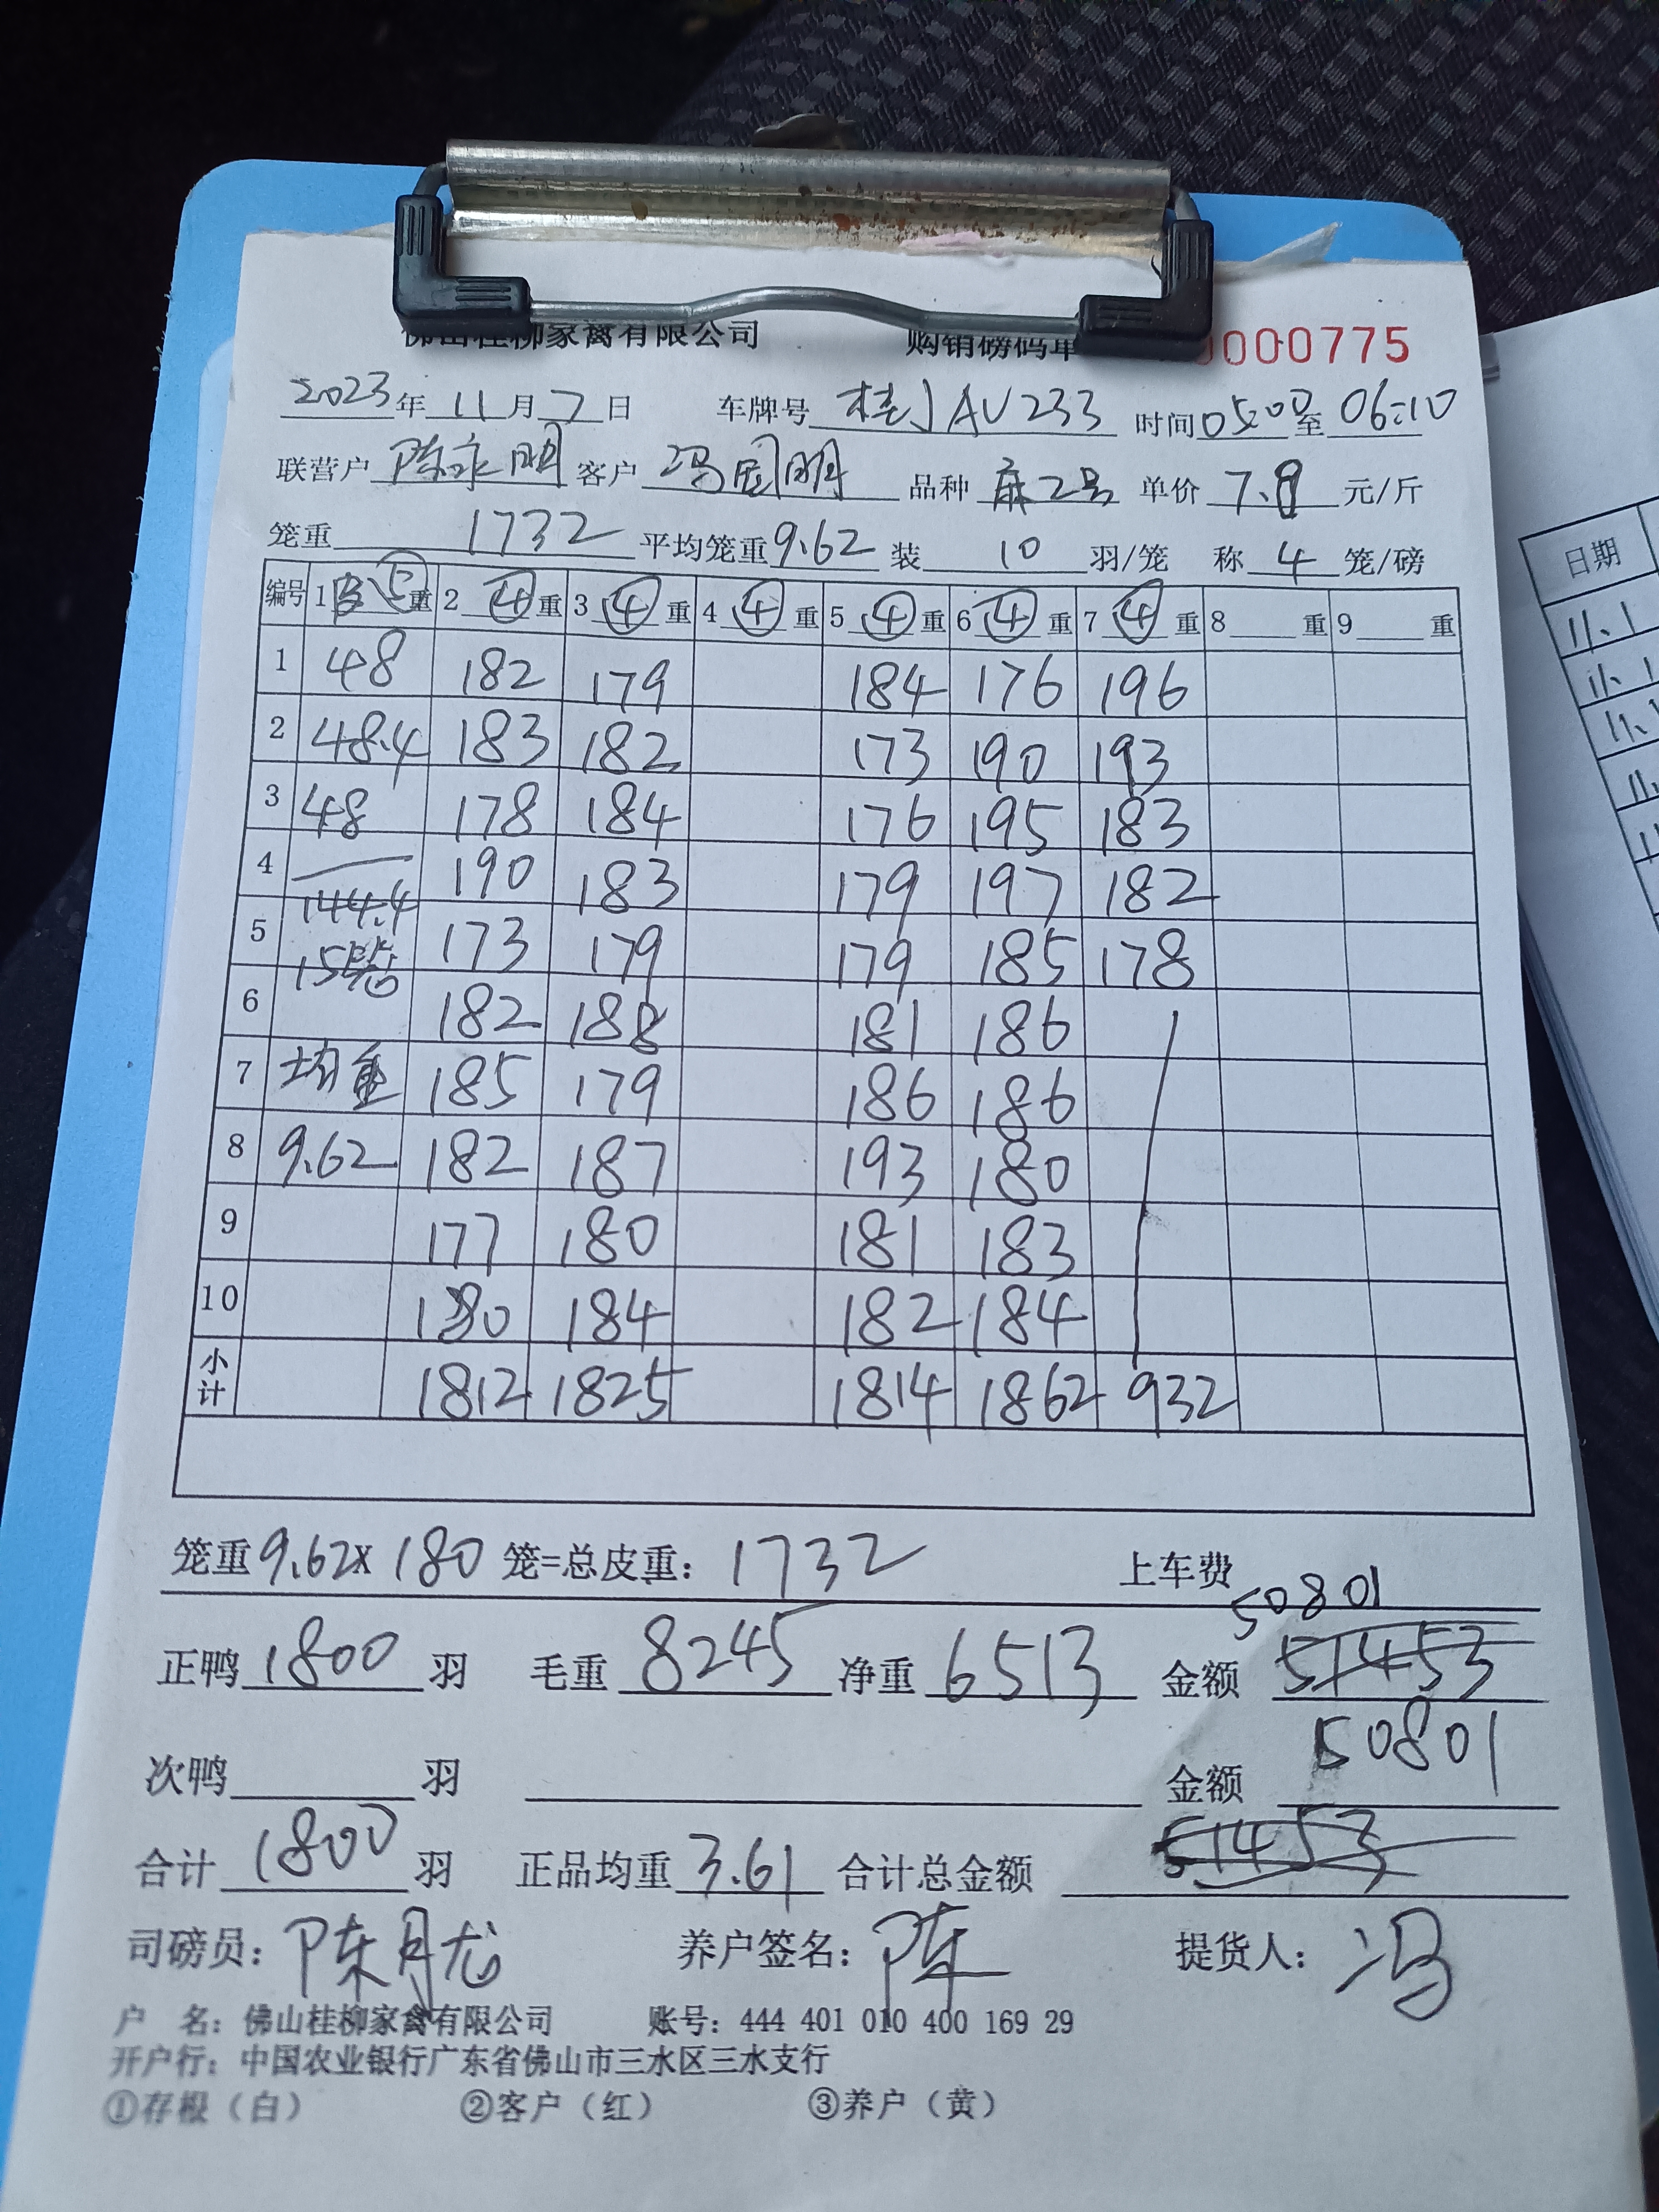 佛山桂柳家禽有限公司 购销磅码单 0000775
2023年11月7日 车牌号 桂JAV233 时间05:00至06:10
联营户 陈永明 客户 冯国明 品种 麻2号 单价 7.8 元/斤
笼重 1732 平均笼重9.62 装 10 羽/笼 称 4 笼/磅
编号 1 皮⑤重 2 ④ 重 3 ④ 重 4 ④ 重 5 ④ 重 6 ④ 重 7 ④ 重 8 重 9 重
1 48 182 179 184 176 196
2 48.4 183 182 173 190 193
3 48 178 184 176 195 183
4 190 183 179 197 182
144.4
5 173 179 179 185 178
15笼
6 182 188 181 186
7 均重 185 179 186 186
8 9.62 182 187 193 180
9 177 180 181 183
10 180 184 182 184
小计 1812 1825 1814 1862 932
笼重9.62x 180 笼=总皮重: 1732 上车费
50801
正鸭 1800 羽 毛重 8245 净重 6513 金额 51453
50801
次鸭 羽 金额
合计 1800 羽 正品均重 3.61 合计总金额 51453
司磅员: 陈月龙 养户签名: 陈 提货人: 冯
户 名: 佛山桂柳家禽有限公司 账号: 444 401 010 400 169 29
开户行: 中国农业银行广东省佛山市三水区三水支行
①存根（白） ②客户（红） ③养户（黄）
日期
11.1
11.1